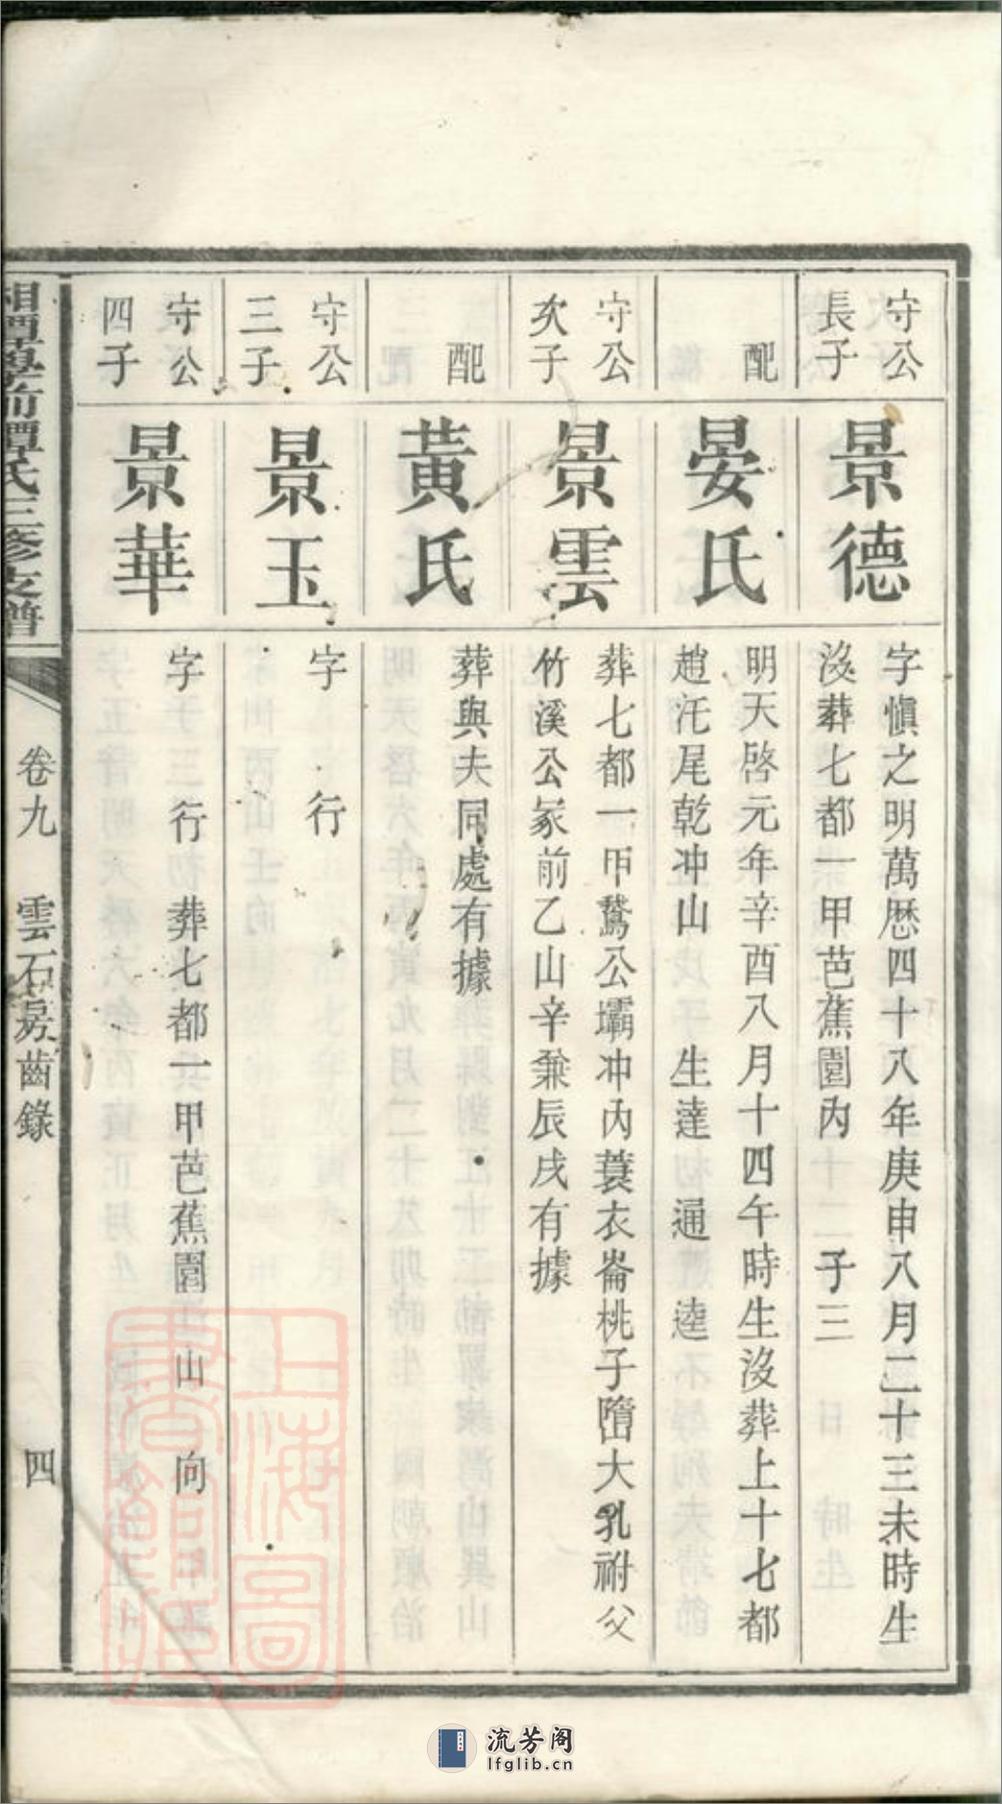 守公
長子
景德
字愼之明萬厯四十八年庚申八月二十三未時生
沒葬七都一甲芭蕉園內 子三
配
晏氏
明天啓元年辛酉八月十四午時生沒葬上十七都
趙汑尾乾冲山 生達 通 逵
守公
次子
景雲
葬七都一甲鵞公壩冲內蓑衣崙桃子隋大乳祔父
竹溪公冢前乙山辛兼辰戌有據
配
黃氏
葬與夫同處有據
守公
三子
景玉
字 行
守公
四子
景華
字 行 葬七都一甲芭蕉園 山 向
湘潭學前譚氏三修支譜
卷九 雲石房齒錄 四
上海圖書館藏
流芳阁
lfglib.cn